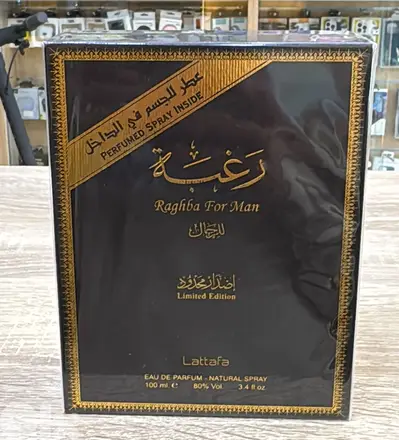 عطر للجسم في الداخل
PERFUMED SPRAY INSIDE
رغبة
Raghba For Man
للرجال
إصدار محدود
Limited Edition
Lattafa
EAU DE PARFUM - NATURAL SPRAY
100 ml. ℮ 80% Vol. 3.4 fl oz